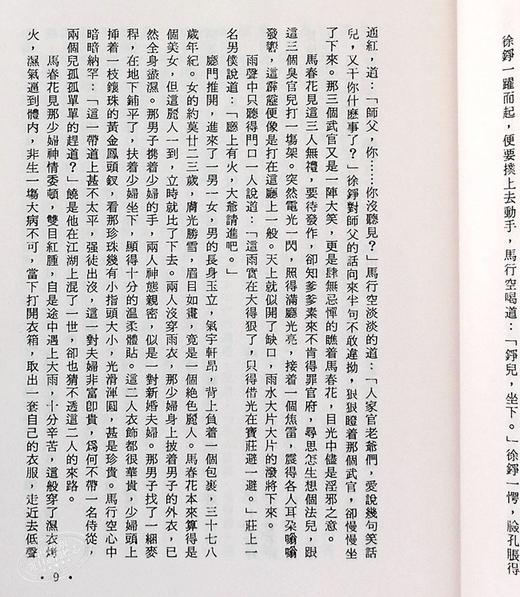 徐錚一躍而起，便要撲上去動手，馬行空喝道：「錚兒，坐下。」徐錚一愕，臉孔脹得
通紅，道：「師父，你……你沒聽見？」馬行空淡淡的道：「人家官老爺們，愛說幾句笑話
兒，又干你什麼事了？」徐錚對師父的話向來半句不敢違拗，狠狠瞪着那個武官，卻慢慢坐
了下來。那三個武官又是一陣大笑，更是肆無忌憚的瞧着馬春花，目光中儘是淫邪之意。
馬春花見這三人無禮，要待發作，卻知爹爹素來不肯得罪官府，尋思怎生想個法兒，跟
這三個臭官兒打一塲架。突然電光一閃，照得滿廳光亮，接着一個焦雷，震得各人耳朶嗡嗡
發響，這霹靂便像是打在這廳上一般。天上就似開了缺口，雨水大片大片的潑將下來。
雨聲中只聽得門口一人說道：「這雨實在大得狠了，只得借光在寶莊避一避。」莊上一
名男僕說道：「廳上有火，大爺請進吧。」
廳門推開，進來了一男一女，男的長身玉立，氣宇軒昂，背上負着一個包裹，三十七八
歲年紀。女的約莫廿二三歲，膚光勝雪，眉目如畫，竟是一個絶色麗人。馬春花本來算得是
個美女，但這麗人一到，立時就比了下去。兩人沒穿雨衣，那少婦身上披着男子的外衣，已
然全身盡濕。那男子携着少婦的手，兩人神態親密，似是一對新婚夫婦。那男子找了一綑麥
稈，在地下鋪平了，扶着少婦坐下，顯得十分的溫柔體貼。這二人衣飾都很華貴，少婦頭上
揷着一枝鑲珠的黃金鳳頭釵，看那珍珠幾有小指頭大小，光滑渾圓，甚是珍貴。馬行空心中
暗暗納罕：「這一帶道上甚不太平，强徒出沒，這一對夫婦非富卽貴，爲何不帶一名侍從，
兩個兒孤孤單單的趕道？」饒是他在江湖上混了一世，卻也猜不透這二人的來路。
馬春花見那少婦神情委頓，雙目紅腫，自是途中遇上大雨，十分辛苦，這般穿了濕衣烤
火，濕氣逼到體內，非生一塲大病不可，當下打開衣箱，取出一套自己的衣服，走近去低聲
• 9 •